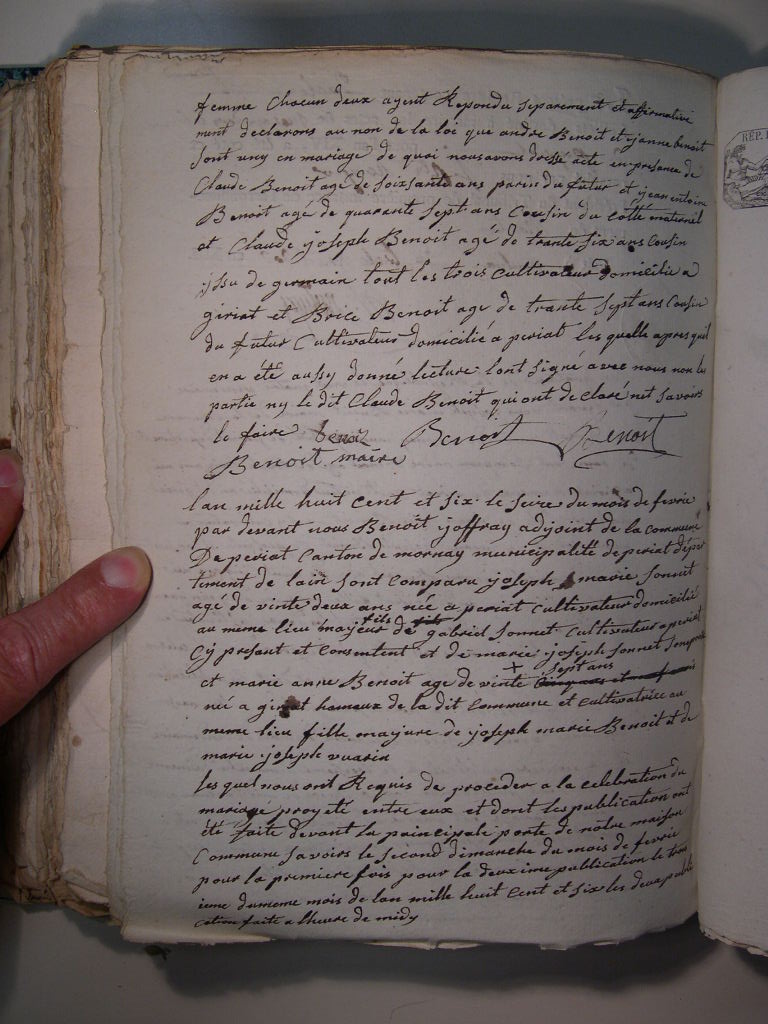 femme chacun deux ayent Repondu separement et affirmative
ment declarons au non de la loi que andre Benoit et janne benoit
sont uny en mariage de quoi nous avons dressé acte en presance de
Claude Benoit agé de soixsante ans parin du futur et jean antoine
Benoit agé de quarante sept ans Cousin du cotté maternel
et Claude joseph Benoit agé de trante six ans Cousin
issu de germain tout les trois cultivateur domicilié a
giriat et Brice Benoit age de trante sept ans Cousin
du futur Cultivateur domicilié a periat les quelle apres quil
en a été aussy donné lecture lont signé avec nous non les
partie ny le dit Claude Benoit qui ont de claré net savoirs
le faire benoit Benoit Benoit
Benoit maire
lan mille huit cent et six le seize du mois de fevrie
par devant nous Benoit joffray adjoint de la commune
De periat Canton de mornay municipalité de periat depar
timent de lain sont Comparu joseph marie sonnet
agé de vinte deux ans née a periat cultivateur domicilié
au meme lieu majeur fils de gabriel sonnet cultivateur a periat
Cy presant et Consentent et de marie joseph sonnet
et marie anne Benoit age de vinte + sept ans
née a giriat hameux de la dit Commune et cultivatrice au
meme lieu fille majure de joseph marie Benoit et de
marie joseph vuarin
les quel nous ont Requis de proceder a la celebration du
mariage proyeté entre eux et dont les publication ont
été faite devant la principale porte de notre maison
Commune savoirs le second dimanche du mois de fevrie
pour la premiere fois pour la deuxime publication le troi
ieme du meme mois de lan mille huit Cent et six les deux publi
cation faite a lheure de midy
REP.